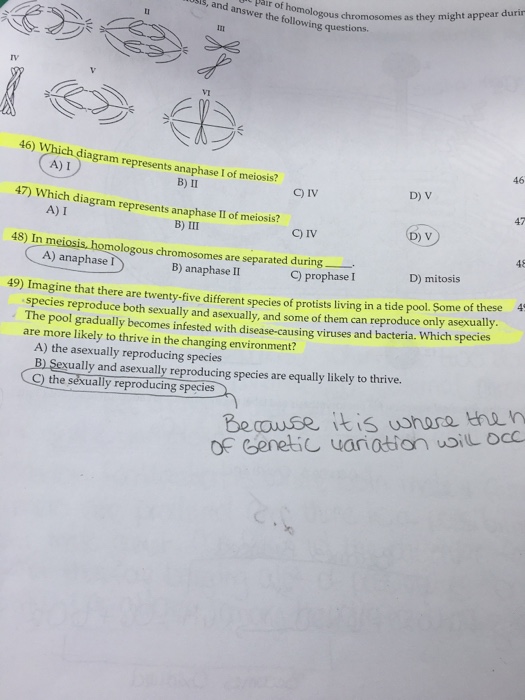 pair of homologous chromosomes as they might appear durin
and answer the following questions.
II
III
IV
V
VI
46) Which diagram represents anaphase I of meiosis?
A) I B) II C) IV D) V
46
47) Which diagram represents anaphase II of meiosis?
A) I B) III C) IV D) V
47
48) In meiosis, homologous chromosomes are separated during ____.
A) anaphase I B) anaphase II C) prophase I D) mitosis
48
49) Imagine that there are twenty-five different species of protists living in a tide pool. Some of these
species reproduce both sexually and asexually, and some of them can reproduce only asexually.
The pool gradually becomes infested with disease-causing viruses and bacteria. Which species
are more likely to thrive in the changing environment?
A) the asexually reproducing species
B) Sexually and asexually reproducing species are equally likely to thrive.
C) the sexually reproducing species
Because it is where the h
of Genetic variation will occ